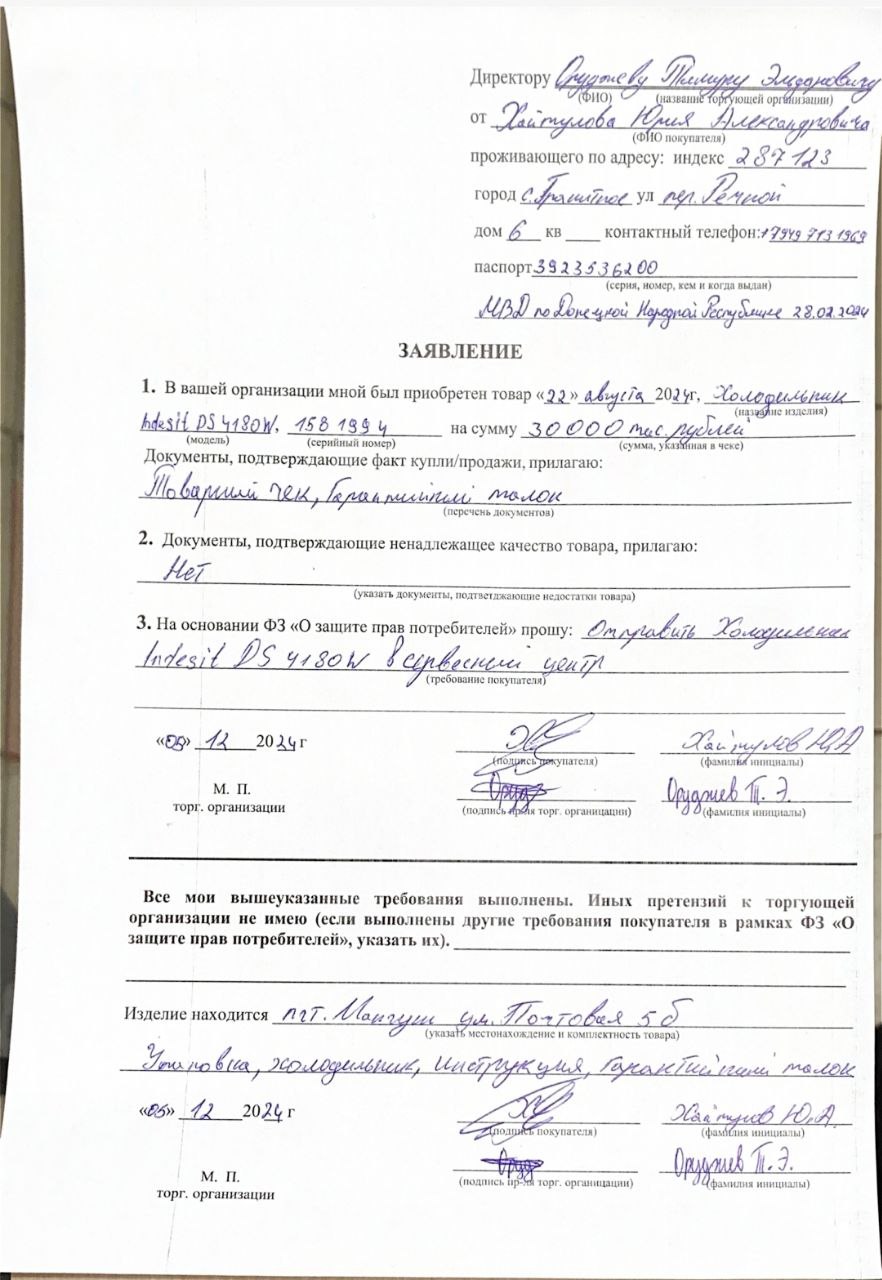 Директору Оруджеву Тимуру Эльдаровичу
(ФИО) (название торгующей организации)
от Хайтулова Юрия Александровича
(ФИО покупателя)
проживающего по адресу: индекс 287123
город с. Гранитное ул пер. Речной
дом 6 кв контактный телефон:+7949 713 1969
паспорт 3923536200
(серия, номер, кем и когда выдан)
МВД по Донецкой Народной Республике 28.02.2024
ЗАЯВЛЕНИЕ
1. В вашей организации мной был приобретен товар «22» августа 2024г, Холодильник
(название изделия)
Indesit DS 4180W, 158 1994 на сумму 30000 тыс. рублей
(модель) (серийный номер) (сумма, указанная в чеке)
Документы, подтверждающие факт купли/продажи, прилагаю:
Товарный чек, Гарантийный талон
(перечень документов)
2. Документы, подтверждающие ненадлежащее качество товара, прилагаю:
Нет
(указать документы, подтветджающие недостатки товара)
3. На основании ФЗ «О защите прав потребителей» прошу: Отправить Холодильник
Indesit DS 4180W в сервесный центр
(требование покупателя)
«05» 12 2024 г Хайтулов Ю.А
(подпись покупателя) (фамилия инициалы)
М. П. Оруд Оруджев Т. Э.
торг. организации (подпись пр-ля торг. органицации) (фамилия инициалы)
Все мои вышеуказанные требования выполнены. Иных претензий к торгующей
организации не имею (если выполнены другие требования покупателя в рамках ФЗ «О
защите прав потребителей», указать их).
Изделие находится пгт. Мангуш ул. Почтовая 5 б
(указать местонахождение и комплектность товара)
холодильник, инструкция, Гарантийный талон
«05» 12 2024 г Хайтулов Ю.А.
(подпись покупателя) (фамилия инициалы)
Оруд Оруджев Т. Э.
М. П. (подпись пр-ля торг. органицации) (фамилия инициалы)
торг. организации